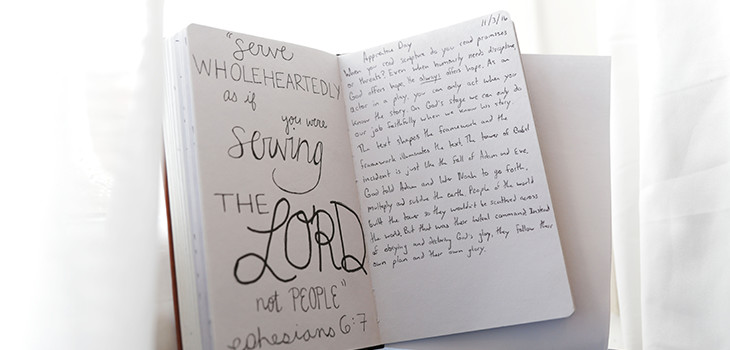 "serve
WHOLEHEARTEDLY
as if
you were
serving
THE
LORD
not PEOPLE"
ephesians 6:7
11/3/16
Apprentice Day
When you read scripture do you read promises
or threats? Even when humanity needs discipline,
God offers hope. He always offers hope. As an
actor in a play, you can only act when you
know the story. On God's stage we can only do
our job faithfully when we know his story.
The text shapes the framework and the
framework illuminates the text. The tower of Babel
incident is just like the fall of Adam and Eve.
God told Adam and later Noah to go forth,
multiply and subdue the earth. People of the world
built the tower so they wouldn't be scattered across
the world. But that was their literal command. Instead
of obeying and declaring God's glory, they follow their
own plan and their own glory.